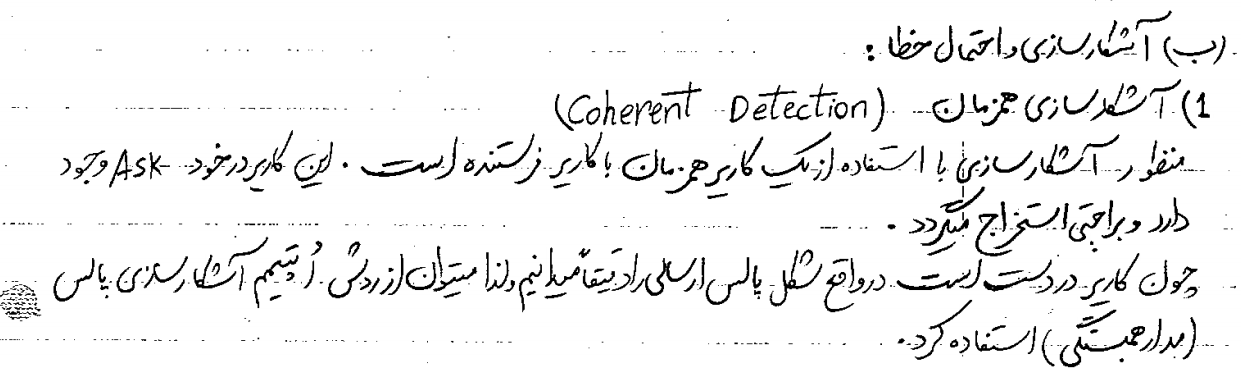 (ب) آشکارسازی و احتمال خطا :
1) آشکارسازی همزمان (Coherent Detection)
منظور آشکارسازی با استفاده از یک کاریر همزمان با کاریر فرستنده است . این کاریر در خود ASK وجود
دارد و براحتی استخراج میگردد .
چون کاریر در دست است در واقع شکل پالس ارسالی را دقیقاً میدانیم ولذا میتوان از روش اُپتیمم آشکارسازی پالس
(مدار همبستگی) استفاده کرد .